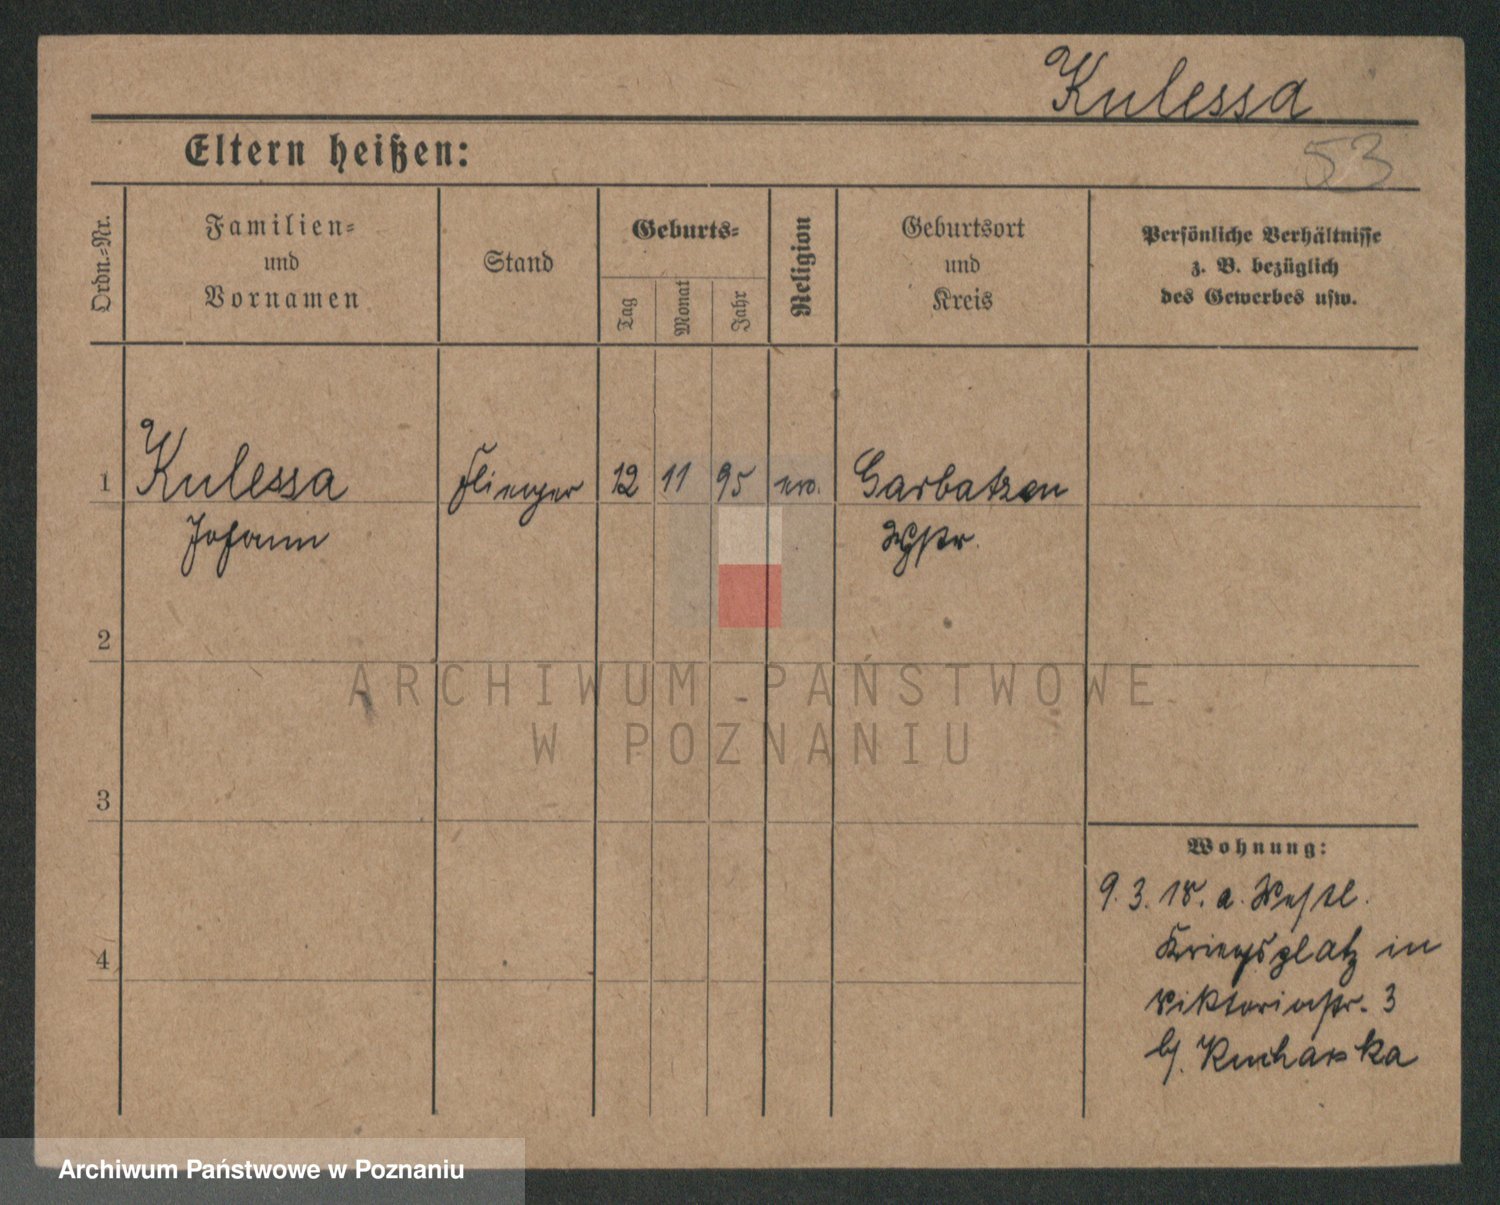 Kulessa
Eltern heißen:
53
Ordn.-Nr.
Familien-
und
Vornamen
Stand
Geburts-
Tag
Monat
Jahr
Religion
Geburtsort
und
Kreis
Persönliche Verhältnisse
z. B. bezüglich
des Gewerbes usw.
1 Kulessa Flieger 12 11 95 ev. Garbatzen
Johann Wpr.
2
ARCHIWUM PAŃSTWOWE
W POZNANIU
3
Wohnung:
9. 3. 18. a. Westl.
Kriegsplatz in
4
Viktoriastr. 3
b/. Kucharska
Archiwum Państwowe w Poznaniu